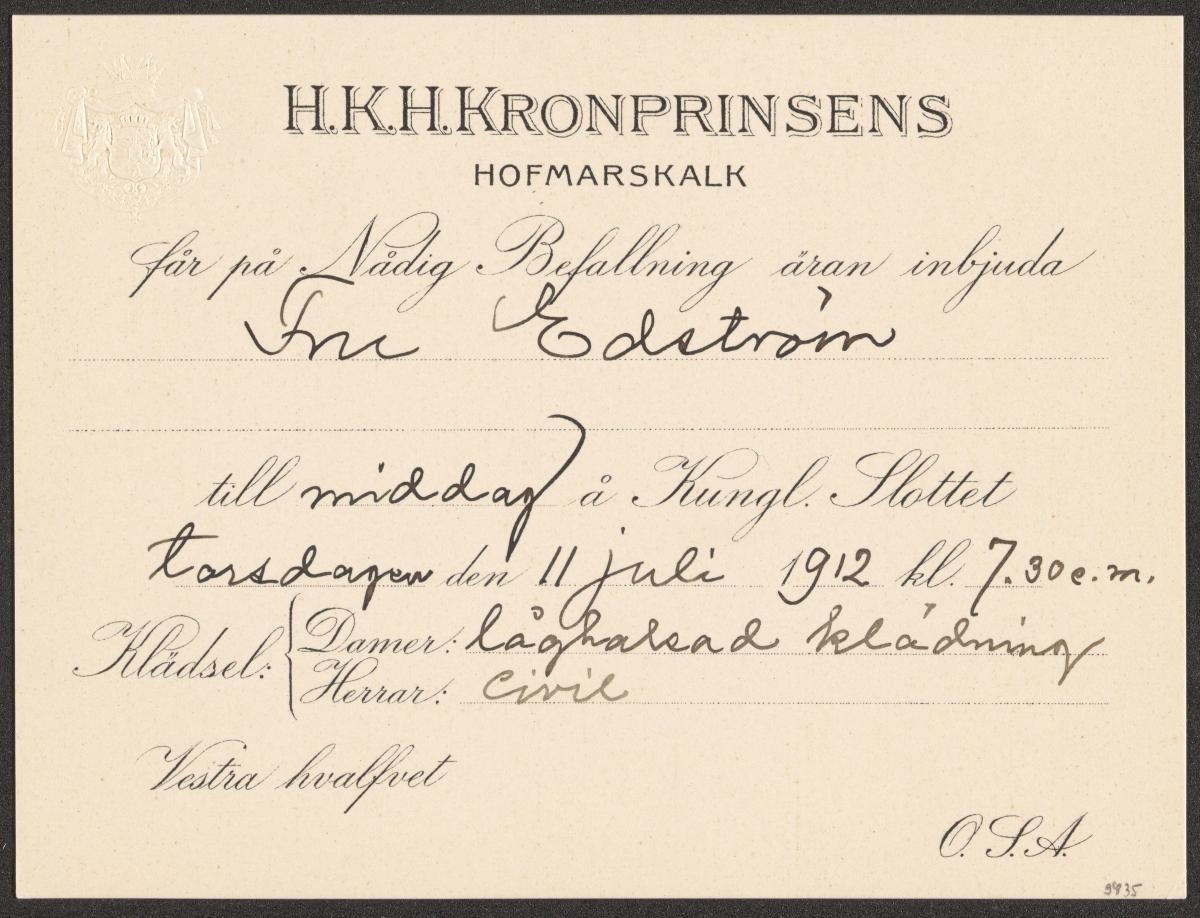 H.K.H. KRONPRINSENS
HOFMARSKALK
får på Nådig Befallning äran inbjuda
Fru Edström
till middag å Kungl. Slottet
torsdagen den 11 juli 1912 kl. 7.30 e.m.
Klädsel: { Damer: låghalsad klädning
Herrar: Civil
Vestra hvalfvet
O.S.A.
9935